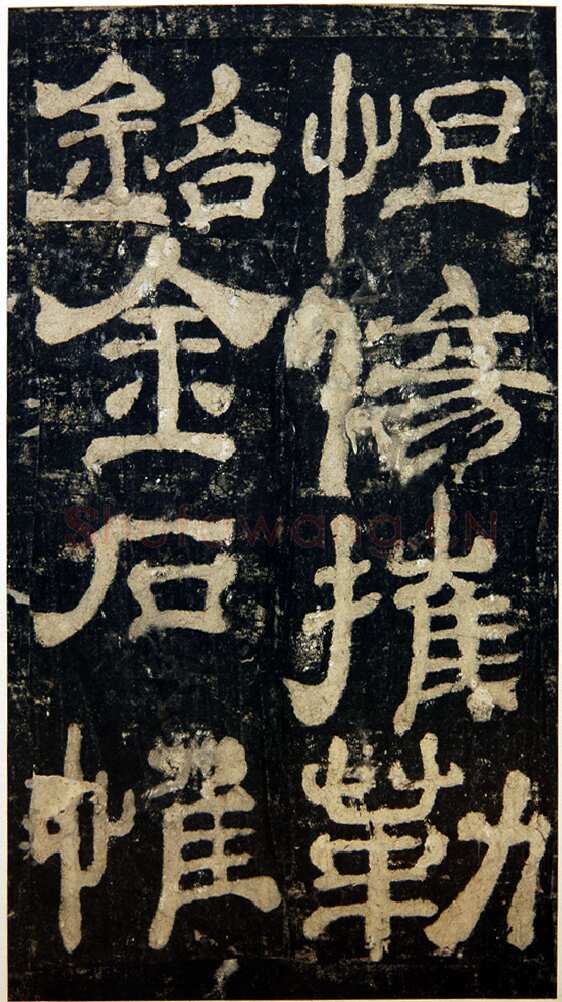 怛傷摧勒
銘金石惟
Shufawang.CN